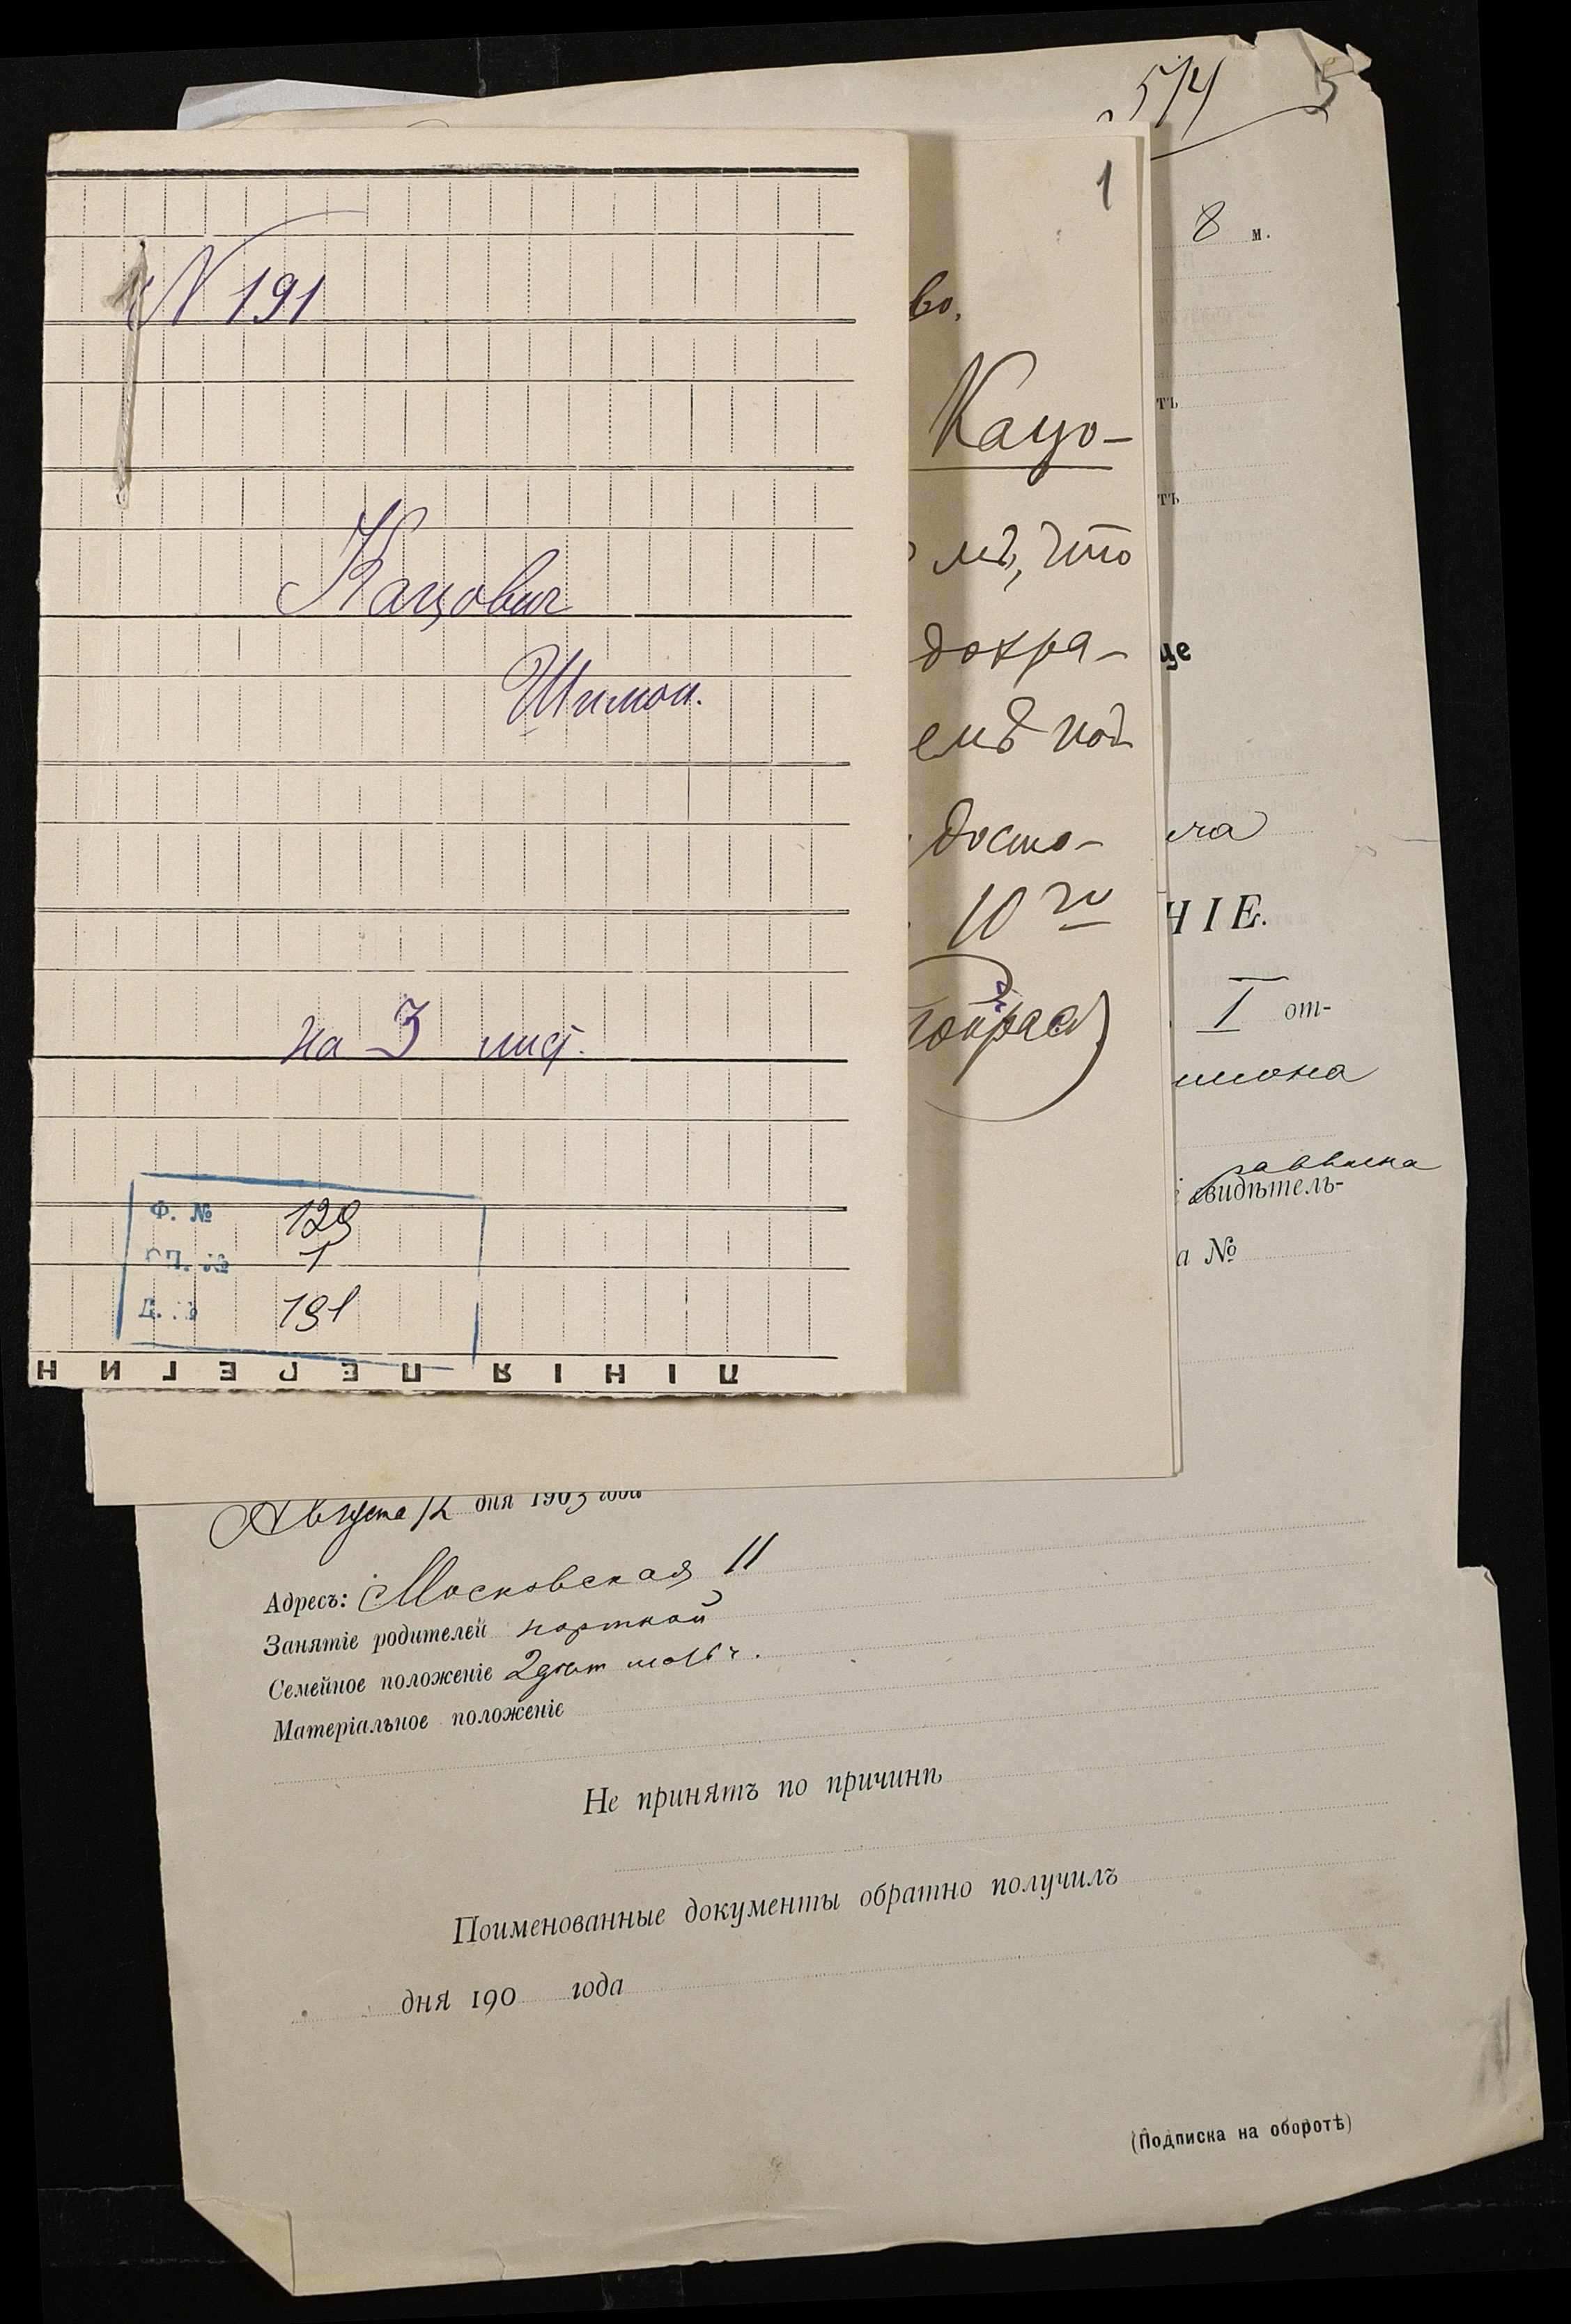 N 191
Кацович
Шимон.
на 3 лист.
Ф. № 129
ОП. № 1
Д. № 191
ЛІНІЯ ПЕРЕГИН
1
во,
Кацо-
мъ, что
докра-
емъ под
досто-
10 го
514
8 м.
тъ
тъ
це
НІЕ.
I от-
имона
раввина
свидѣтель-
а №
Августа 12 дня 1903 года
Адресъ: Московская 11
Занятіе родителей портной
Семейное положеніе
Матеріальное положеніе
Не принятъ по причинѣ
Поименованные документы обратно получилъ
дня 190 года
(Подписка на оборотѣ)